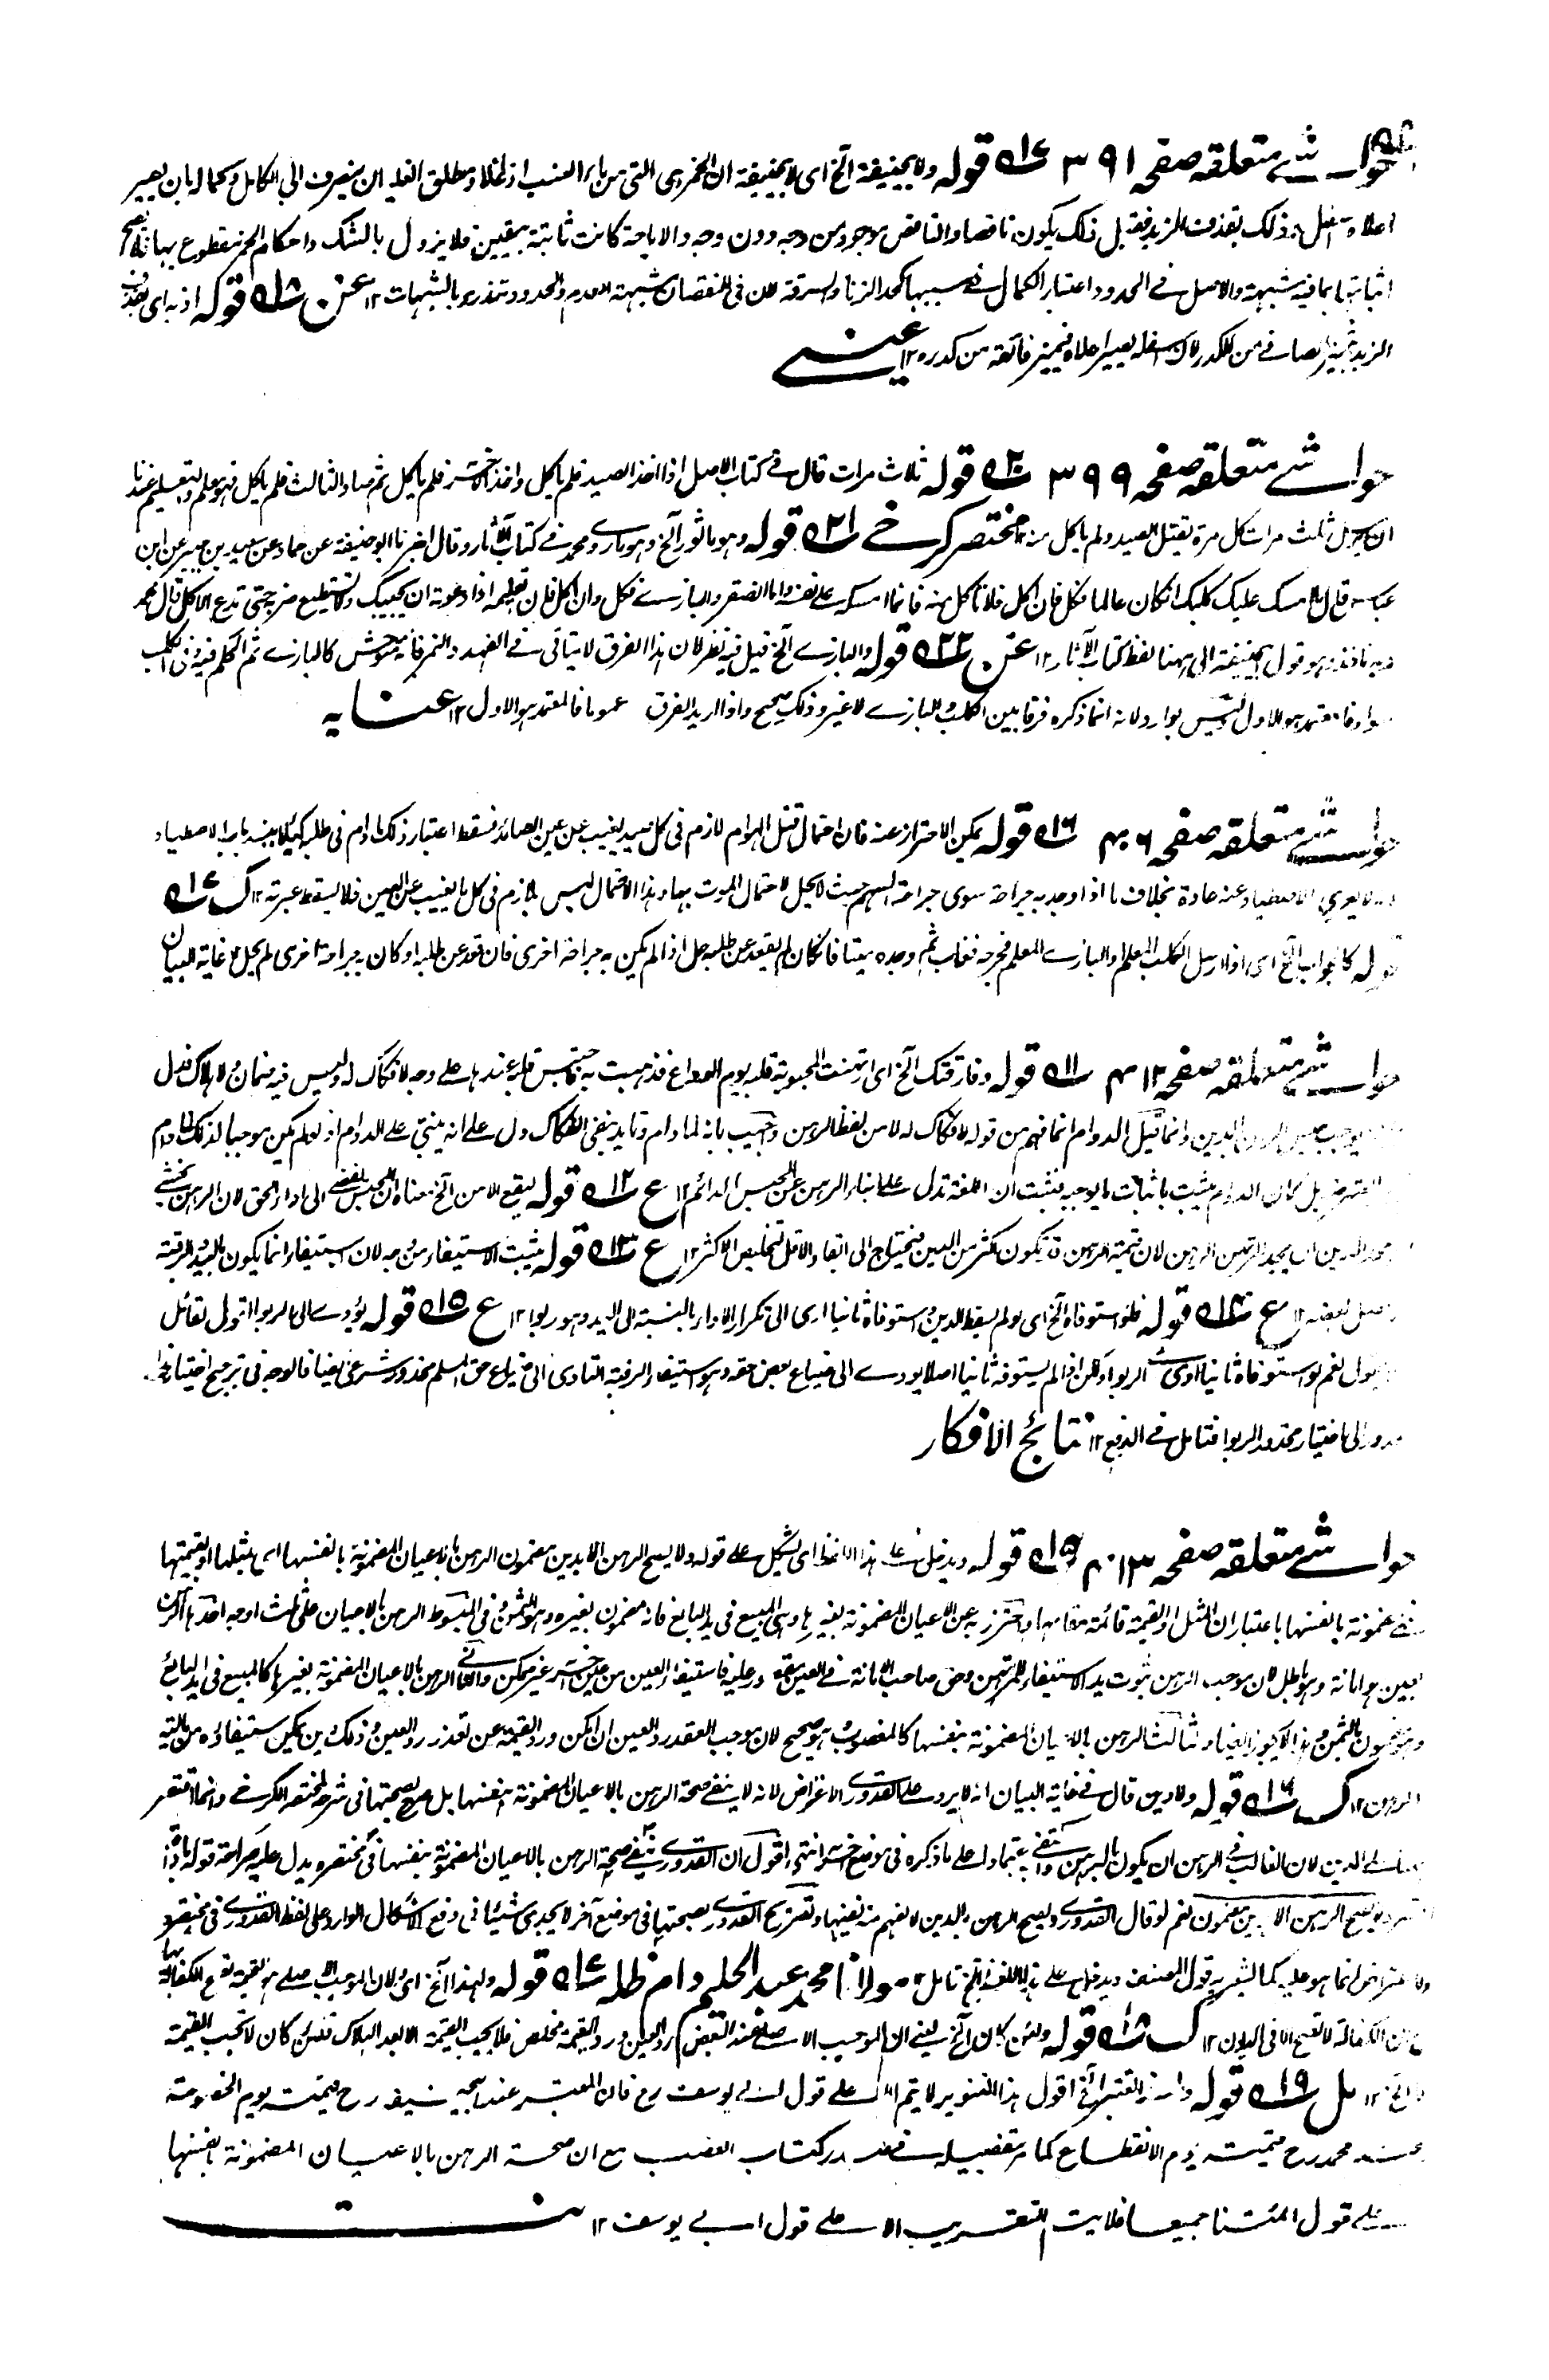 حواشے متعلقہ صفحہ ۳۹۱ ۱۷ قوله ولابی حنیفة الخ ای لابی حنیفة ان الخمر هی التی من ماء العنب اذا غلا ومطلق الغلیان ینصرف الی الکامل وکماله بان یصیر
اعلاه اسفل وذلک بقذفه الزبد فقبل ذلک یکون ناقصا والناقص موجود من وجه دون وجه والاباحة کانت ثابتة بیقین فلا یزول بالشک واحکام الخمر مقطوع بها فلا یصح
اثباتها بما فیه شبهة والاصل فے الحدود اعتبار الکمال فے سببها کحد الزنا والسرقة لان فی النقصان شبهة العدم والحدود تندرئ بالشبهات ۱۲ عن ۱۸ قوله اذ به ای بقذف
الزبد یتمیز الصافے من الکدر لان اسفله یصیر اعلاه فیتمیز فائقه من کدره ۱۲ عینی
حواشے متعلقہ صفحہ ۳۹۹ ۲۰ قوله ثلاث مرات قال فے کتاب الاصل اذا اخذ الصید فلم یاکل واخذ آخر فلم یاکل ثم صاد الثالث فلم یاکل فهو معلم والتعلیم عندنا
ان یرسل ثلث مرات کل مرة یقتل الصید ولم یاکل منه ۱۲ مختصر کرخے ۲۱ قوله وهو ماثور الخ وهو ما روے محمد فے کتاب الآثار وقال اخبرنا ابو حنیفة عن حماد عن سعید بن جبیر عن ابن
عباس قال ما امسک علیک کلبک ان کان عالما فکل فان اکل فلا تاکل منه فانما امسکه علے نفسه واما الصقر والبازے فکل وان اکل فان تعلیمه اذا دعوته ان یجیبک ولا تستطیع ضربه حتی تدع الاکل قال محمد
وبه ناخذ وهو قول ابی حنیفة الی ههنا لفظ کتاب الآثار ۱۲ عن ۲۲ قوله والبازے الخ قیل فیه نظر لان هذا الفرق لا یتاتی فے الفهد والنمر فانه متوحش کالبازے ثم الحکم فیه وفی الکلب
سواء فالمعتمد هو الاول ولیس بوارد لانه انما ذکره فرقا بین الکلب والبازے لا غیر وذلک صحیح واذا ارید الفرق عموما فالمعتمد هو الاول ۱۲ عنایه
حواشے متعلقہ صفحہ ۴۰۶ ۱۶ قوله یمکن الاحتراز عنه فان احتمال قتل الهوام لازم فی کل صید یغیب عن عین الصائد فسقط اعتبار ذلک ما دام فی طلبه کیلا ینسد باب الاصطیاد
لا یعری الاصطیاد عنه عادة بخلاف ما اذا وجد به جراحة سوی جراحة السهم حیث لا یحل لاحتمال الموت بها وهذا الاحتمال لیس بلازم فی کل ما یغیب عن العین فلا یسقط عبرته ۱۲ ک ۱۷
قوله کالجواب الخ ای اذا ارسل الکلب المعلم او البازے المعلم فجرحه فغاب ثم وجده میتا فان کان لم یقعد عن طلبه حل اذا لم یکن به جراحة اخری فان قعد عن طلبه او کان به جراحة اخری لم یحل ۱۲ غایة البیان
حواشے متعلقہ صفحہ ۴۱۲ ۱۱ قوله وفارقتک الخ ای ارتهنت المحبوبة قلبه یوم الوداع فذهبت به فاحتبس قلبه عندها علے وجه لا فکاک له ولیس فیه ضمان ولا هلاک فدل
الدین وانما قیل الدوام انما فهم من قوله لا فکاک له لا من لفظ الرهن واجیب بانه لما دام وتابد بنفی الفکاک دل علے انه ینبئ علے الدوام اذ لو لم یکن موجبا لذلک لما دام
بل کان الدوام یثبت باثبات ما یوجبه فثبت ان اللغة تدل علے انباء الرهن عن الحبس الدائم ۱۲ ع ۱۲ قوله لیقع الامن الخ معناه ان الحبس یفضے الی اداء الحق لان الراهن یخشے
جحد الدین ان یجحد المرتهن الرهن لان قیمة الرهن قد تکون اکثر من الدین فیحتاج الی ایفاء الاقل لتخلیص الاکثر ۱۲ ع ۱۳ قوله یثبت الاستیفاء من وجه لان الاستیفاء انما یکون بالید والرقبة
حصل بعضه ۱۲ ع ۱۴ قوله فلو استوفاه الخ ای لو لم یسقط الدین واستوفاه ثانیا ادی الی تکرار الاداء بالنسبة الی الید وهو ربوا ۱۲ ع ۱۵ قوله یؤدے الی الربوا اقول لقائل
ان یقول نعم لو استوفاه ثانیا ادی الی الربوا ولکن اذا لم یستوفه ثانیا اصلا یودے الی ضیاع بعض حقه وهو استیفاء الرقبة التادی الی ضیاع حق المسلم محذور شرعی ایضا فالوجه فی ترجیح اختیار
الی اختیار محذور الربوا فتامل فے الدفع ۱۲ نتائج الافکار
حواشے متعلقہ صفحہ ۴۱۳ ۱۵ قوله ویدخل علے هذا اللفظ ای یشکل علے قوله ولا یصح الرهن الا بدین مضمون الرهن بالاعیان المضمونة بانفسها ای بمثلها او بقیمتها
مضمونة بانفسها باعتبار ان المثل او القیمة قائمة مقامها واحترز به عن الاعیان المضمونة بغیرها وهی المبیع فی ید البائع فانه مضمون بغیره وهو الثمن وفی المبسوط الرهن بالاعیان علی ثلث اوجه احدها الرهن
بعین هو امانة وهو باطل لان موجب الرهن ثبوت ید الاستیفاء للمرتهن وحق صاحب الامانة فے العین مقصور علیه فاستیفاء العین من عین آخر غیر ممکن والثانے الرهن بالاعیان المضمونة بغیرها کالمبیع فی ید البائع
وهو مضمون بالثمن وهذا لا یجوز ایضا والثالث الرهن بالاعیان المضمونة بنفسها کالمغصوب وهو صحیح لان موجب العقد رد العین ان امکن ورد القیمة عند تعذر رد العین وذلک دین یمکن استیفاؤه من مالیة
الرهن ۱۲ ک ۱۶ قوله ولا دین قال فے غایة البیان انه لا یرد علے القدورے الاعتراض لانه لا ینفے صحة الرهن بالاعیان المضمونة بانفسها بل صرح بصحتها فی شرحه لمختصر الکرخے وانما اقتصر
علے الدین لان الغالب فی الرهن ان یکون بالدین واکتفی اعتمادا علے ما ذکره فی موضع آخر انتهی اقول ان القدورے ینفے صحة الرهن بالاعیان المضمونة بنفسها فی مختصره یدل علیه صراحة قوله
ولا یصح الرهن الا بدین مضمون نعم لو قال القدورے ویصح الرهن بالدین لا یفهم منه نفیها وتصریح القدورے بصحتها فی موضع آخر لا یجدی شیئا فی دفع الاشکال الوارد علی لفظ القدورے فی مختصره
والاعتراض انما هو علیه کما یشعر به قول المصنف ویدخل علے هذا اللفظ الخ تامل ۱۲ مولانا محمد عبد الحلیم دام ظله ۱۷ قوله ولهذا الخ ای ولان الموجب الاصلے هو القیمة تصح الکفالة بها
لان الکفالة لا تصح الا فی الدیون ۱۲ ک ۱۸ قوله ولئن کان الخ یعنے ان الموجب الاصلے عند البعض رد العین ورد القیمة مخلص فلا یجب القیمة الا بعد الهلاک فلئن کان لا تجب القیمة
الخ ۱۲ مل ۱۹ قوله اقول هذا التنویر لا یتم الا علے قول ابے یوسف رح فان المعتبر عند ابی حنیفة رح قیمته یوم الخصومة
وعند محمد رح قیمته یوم الانقطاع کما مر تفصیله فے صدر کتاب الغصب مع ان صحة الرهن بالاعیان المضمونة بانفسها
علے قول ائمتنا جمیعا فلا یتم التقریب الا علے قول ابے یوسف ۱۲